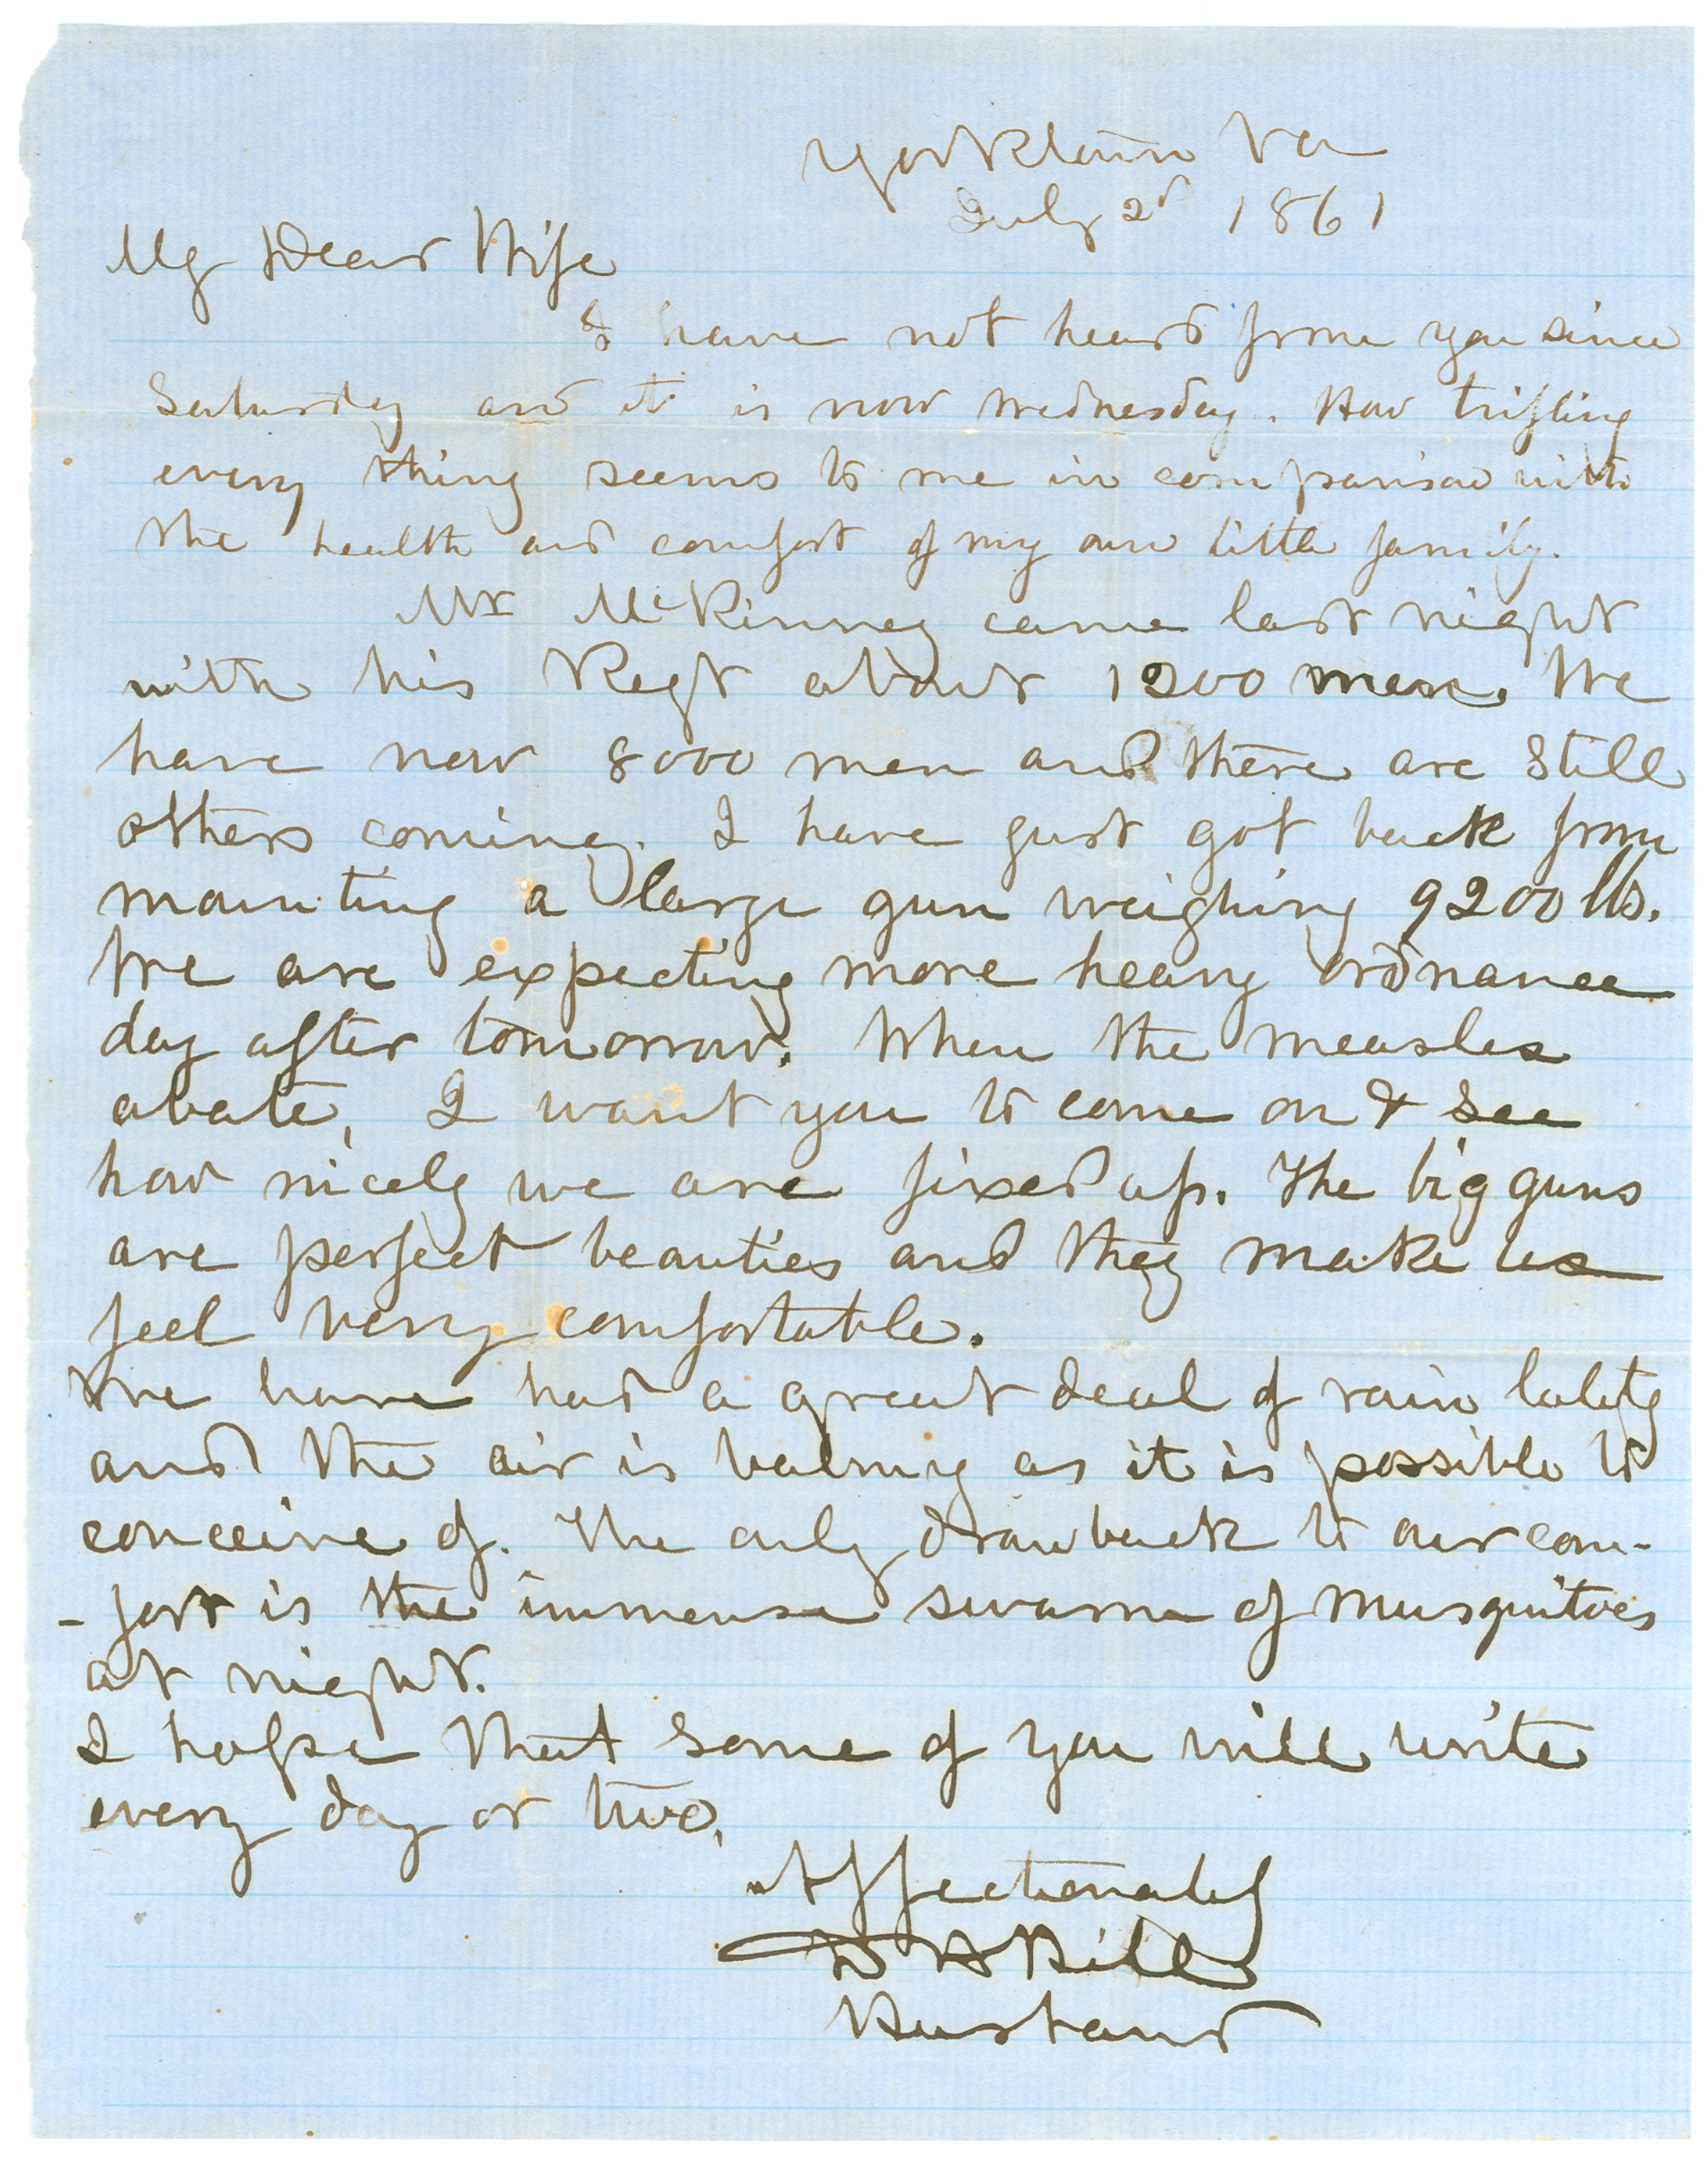 Yorktown Va
July 2d 1861
My Dear Wife
I have not heard from you since
Saturday and it is now Wednesday. How trifling
every thing seems to me in comparison with
the health and comfort of my own little family.
Mr McKinney came last night
with his Regt about 1200 men. We
have now 8000 men and there are still
others coming. I have just got back from
mounting a large gun weighing 9200 lbs.
We are expecting more heavy ordnance
day after tomorrow. When the measles
abate, I want you to come on & see
how nicely we are fixed up. The big guns
are perfect beauties and they make us
feel very comfortable.
We have had a great deal of rain lately
and the air is balmy as it is possible to
conceive of. The only drawback to our com-
-fort is the immense swarm of Musquitoes
at night.
I hope that some of you will write
every day or two,
Affectionately
D H Hill
Husband